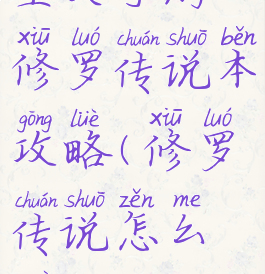 xiū luó chuán shuō běn
修罗传说本
gōng lüè xiū luó
攻略(修罗
chuán shuō zěn me
传说怎么